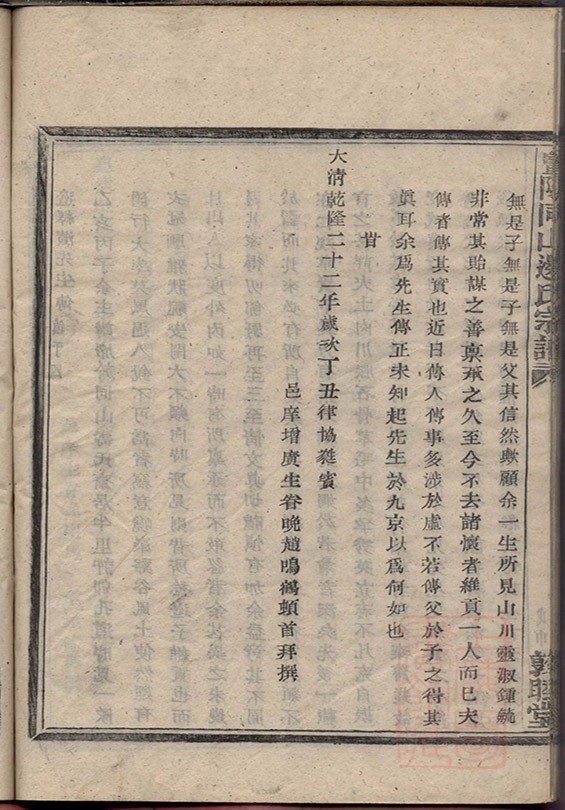 無是子無是子無是父其信然歟顧余一生所見山川靈淑鍾毓
非常其貽謀之善稟承之久至今不去諸懷者維貢一人而已夫
傳者傳其實也近日傳人傳事多涉於虛不若傳父於子之得其
眞耳余爲先生傳正未知起先生於九京以爲何如也
旹
大清乾隆二十二年歲次丁丑律協蕤賓
邑庠增廣生眷晚趙鳴鶴頓首拜撰
敦睦堂